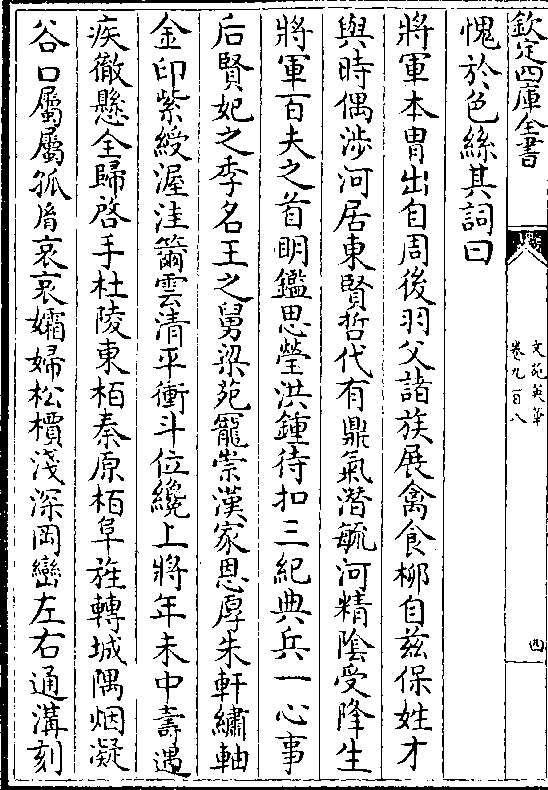 欽定四庫全書
文苑英華
卷九百八
四
愧於色絲其詞曰
將軍本胄出自周後羽父諸族展禽食柳自兹保姓才
與時偶涉河居東賢哲代有鼎氣潛毓河精陰受降生
將軍百夫之首明鑑思瑩洪鍾待扣三紀典兵一心事
后賢妃之季名王之舅梁苑寵崇漢家恩厚朱軒繡軸
金印紫綬渥洼籋雲清平衝斗位纔上將年未中壽遇
疾徹懸全歸啓手杜陵東栢秦原栢阜旌轉城隅烟凝
谷口屬屬孤㣧哀哀孀婦松檟淺深岡巒左右通溝刻